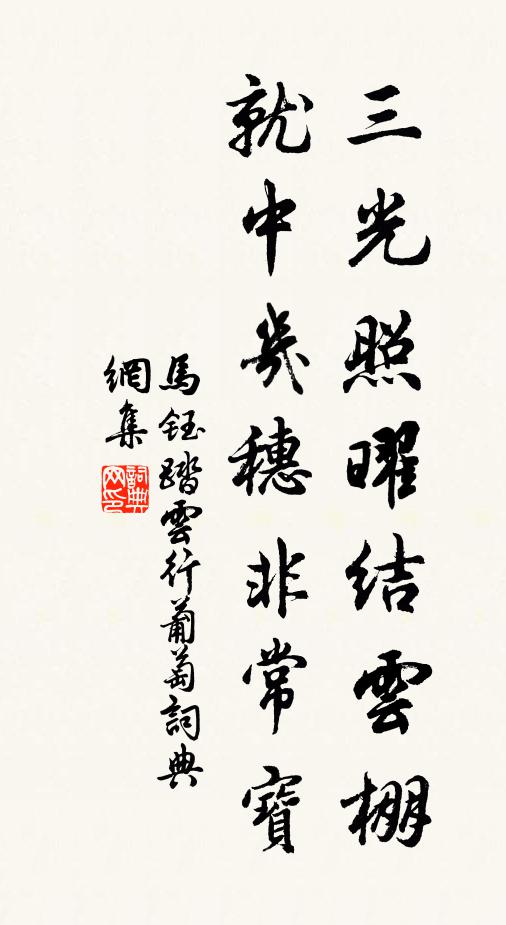 三光照曜結雲棚
就中幾穗非常寶
馬鈺踏雲行葡萄詞典
網集
詞典
网印